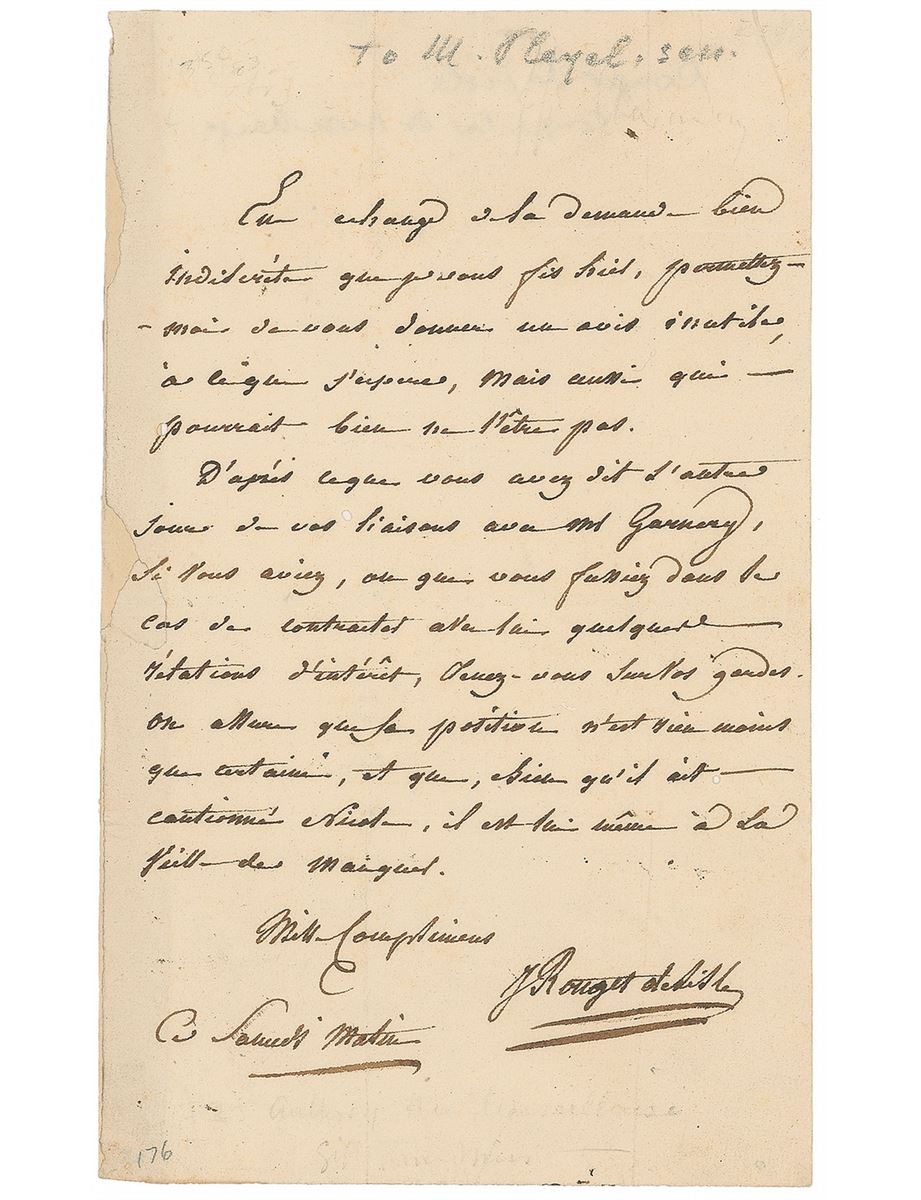 to M. Pleyel. sen.
En echange de la demande bien
indiscréte que je vous fis hier, permettez-
-moi de vous donner un avis inutile,
à ce que j'espere, mais aussi qui
pourrait bien ne l'être pas.
D'après ce que vous avez dit l'autre
jour de vos liaisons avec Mr Garnery,
si vous aviez, ou que vous fussiez dans le
cas de contracter avec lui quelques
rélations d'intérêt, tenez-vous sur vos gardes.
on assure que sa position n'est rien moins
que certaine, et que, bien qu'il ait
cautionné Nicole, il est lui même à la
veille de manquer.
Mille Complimens
J Rouget de Lisle
Ce Samedi Matin
176